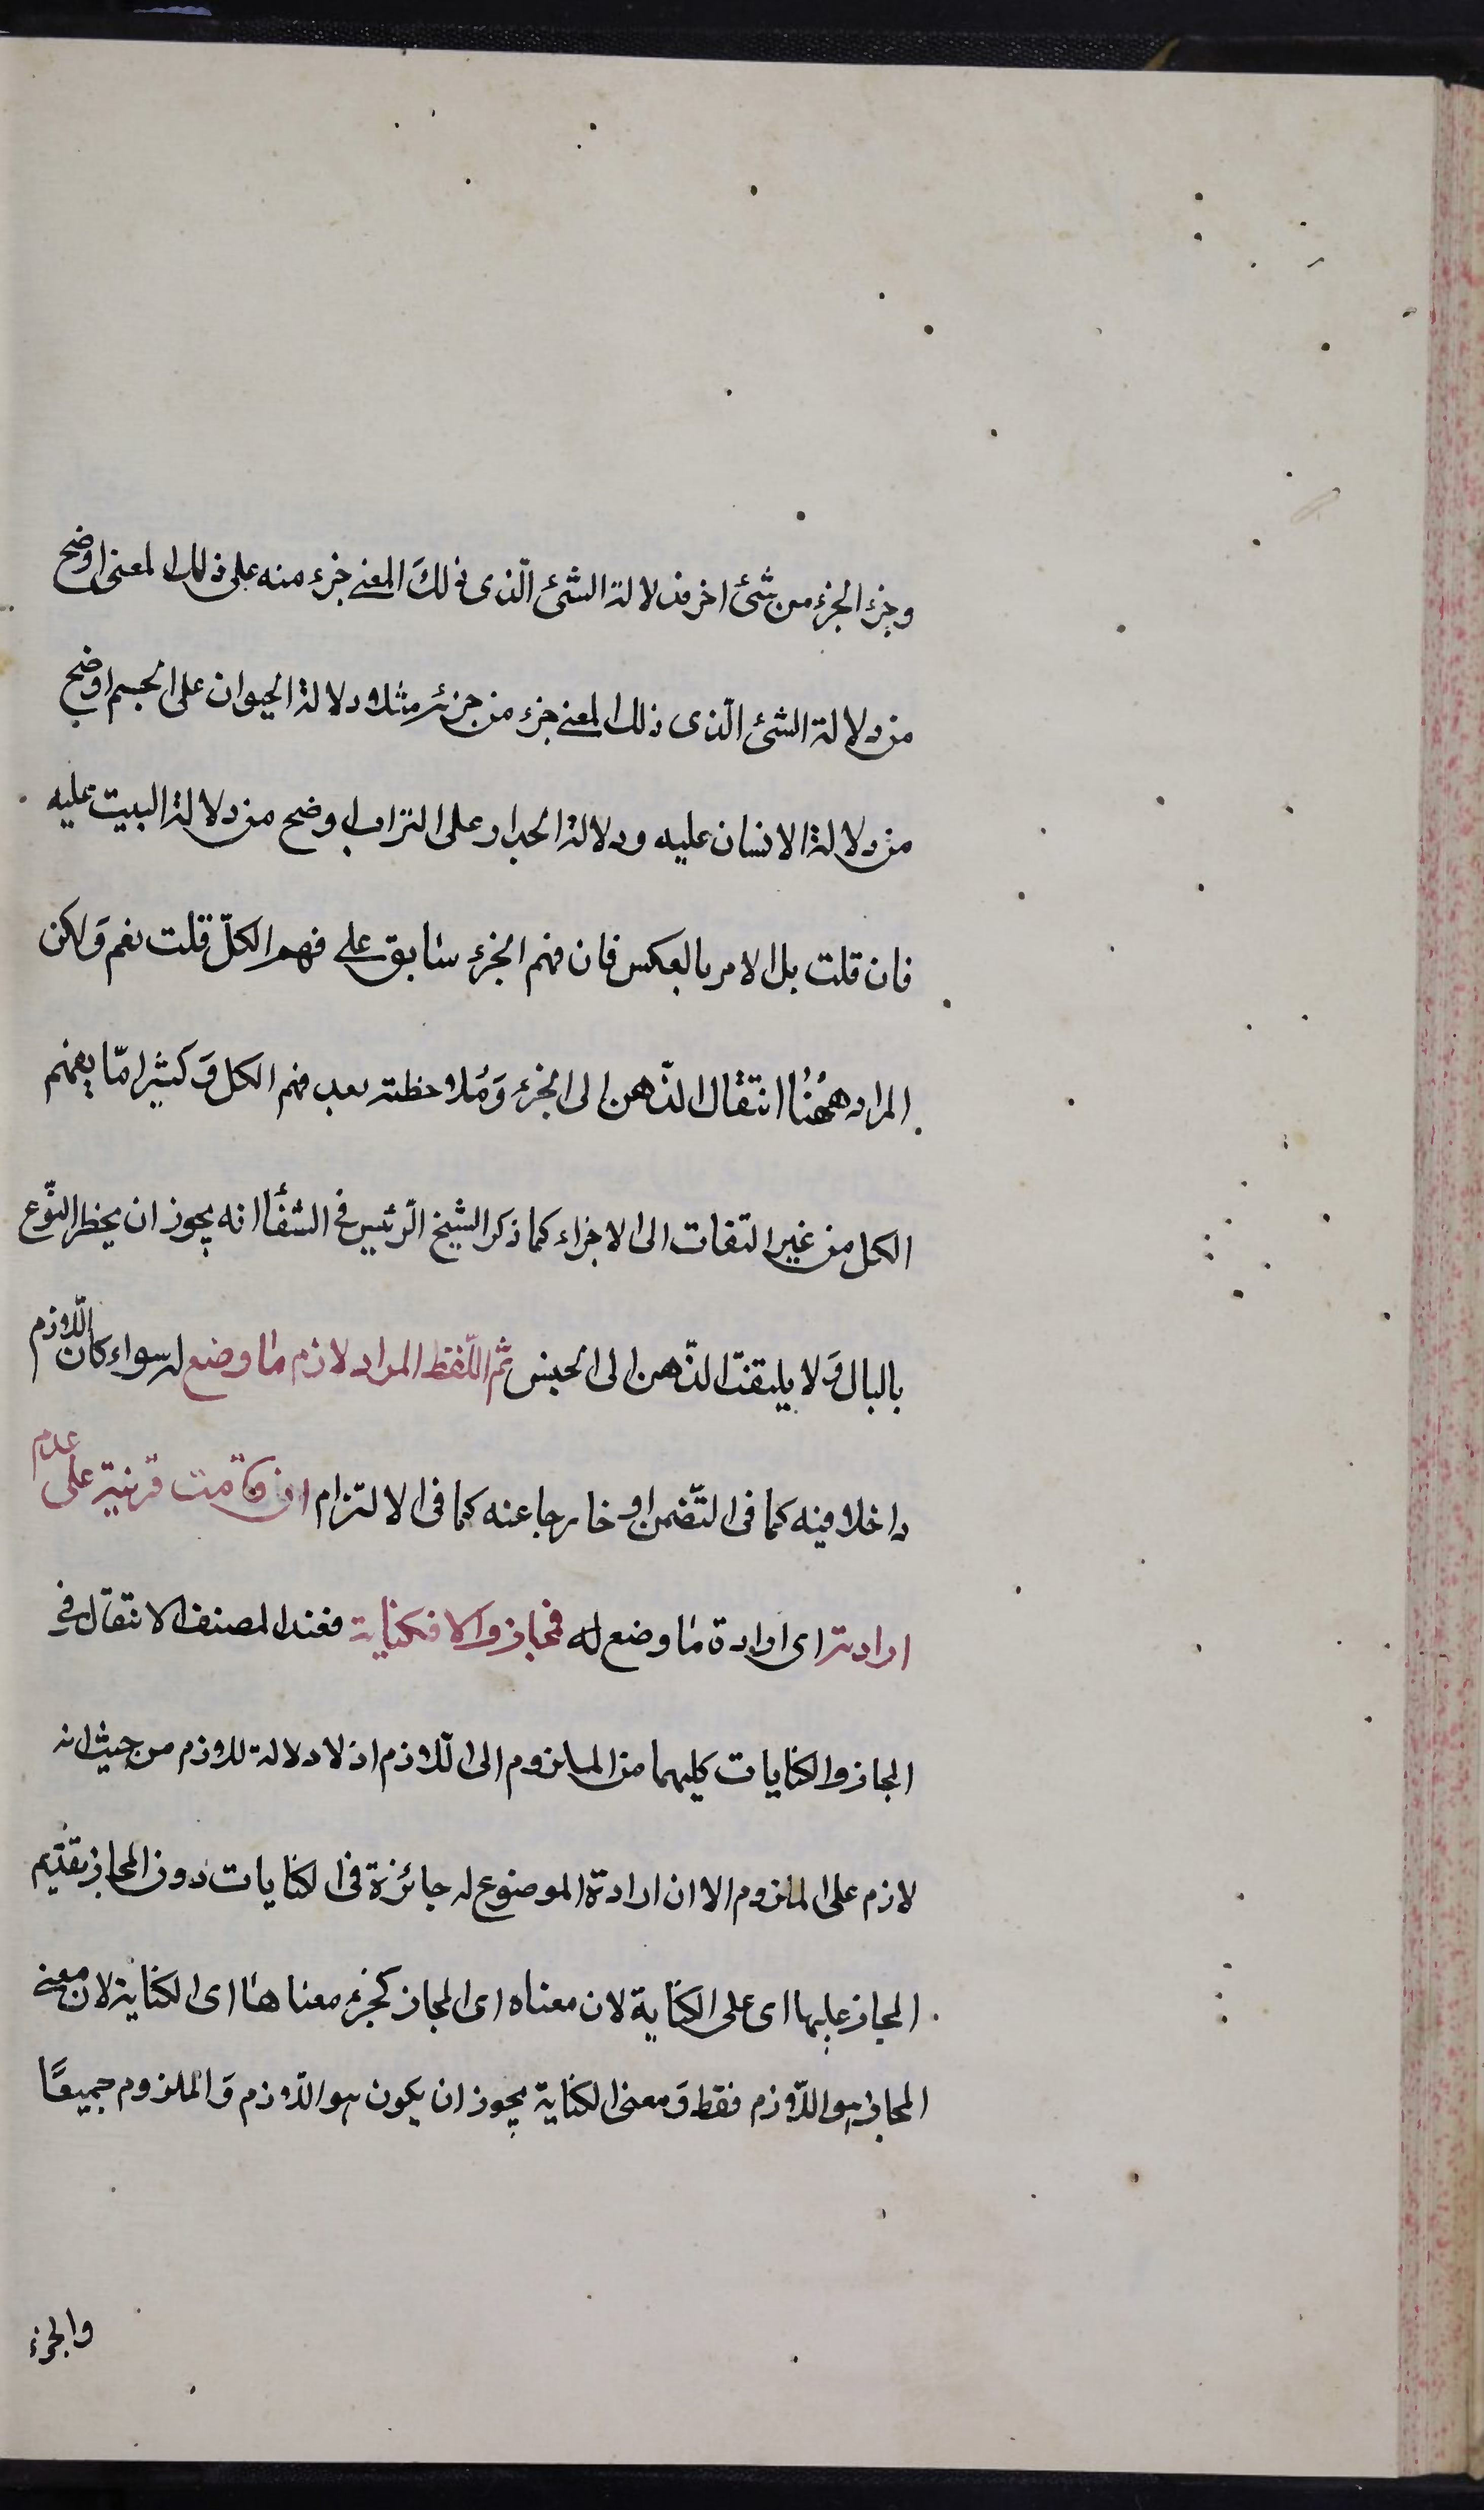 وجزء الجزء من شئ اخر فدلالة الشئ الّذى ذلكَ المعنى جزء منه على ذلك المعنى اوضح
من دلالة الشئ الّذى ذلك المعنى جزء من جزئه مثلا دلالة الحيوان على الجسم اوضح
من دلالة الانسان عليه ودلالة الجدار على التراب اوضح من دلالة البيت عليه
فان قلت بل الامر بالعكس فان فهم الجزء سابق على فهم الكلّ قلت نعم وَلكن
المراد هٰهُنا انتقال الذّهن الى الجزء وَمُلاحظته بعد فهم الكل وَكثيرا مّا يفهم
الكل من غير التفات الى الاجزاء كما ذكر الشيخ الرّئيس فى الشفأ انه يجوز ان يخطر النّوع
بالبال وَلا يلتفت الذّهن الى الجنس ثم اللّفظ المراد لازم ما وضع له سواء كان اللّازم
داخلا فيه كما فى التّضمن او خارجا عنه كما فى الالتزام ان قامت قرينة على عدم
ارادته اى ارادة ما وضع له فمجاز والا فكناية فعند المصنف الانتقال فى
المجاز والكنايات كليهما من الملزوم الى اللّازم اذ لا دلالة للازم من حيث انه
لازم على الملزوم الا ان ارادة الموضوع له جائزة فى الكنايات دون المجاز تقديم
المجاز عليها اى على الكناية لان معناه اى المجاز كجزء معناها اى الكناية لان معنى
المجاز هو اللّازم فقط وَمعنى الكناية يجوز ان يكون هو اللّازم وَالملزوم جميعًا
والجزء